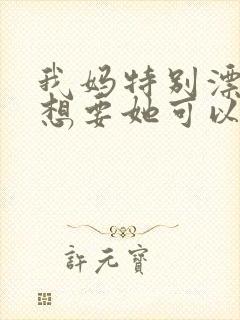 我妈特别漂
想要她可以
許元寶